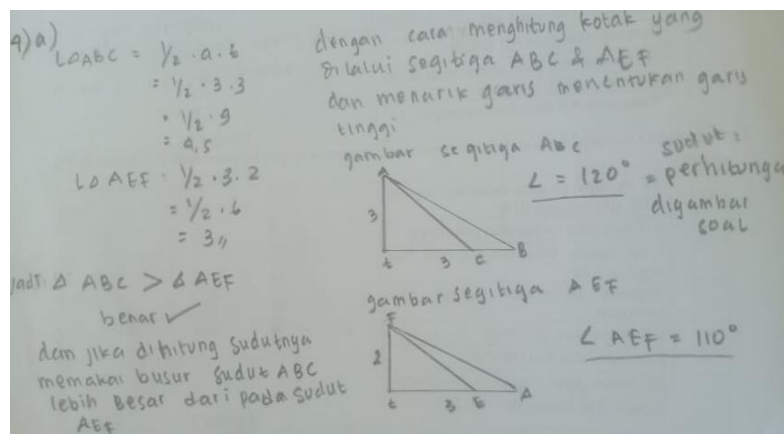 4) a)
L△ABC = 1/2 . a . t
= 1/2 . 3 . 3
= 1/2 . 9
= 4,5
L△ AEF = 1/2 . 3 . 2
= 1/2 . 6
= 3 //
Jadi △ ABC > △ AEF
benar ✓
dan jika dihitung sudutnya
memakai busur sudut ABC
lebih Besar dari pada sudut
AEF
dengan cara menghitung kotak yang
dilalui segitiga ABC & AEF
dan menarik garis menentukan garis
tinggi
gambar segitiga ABC
A
3
t 3 C B
∠ = 120°
sudut :
= perhitunga
digambar
soal
gambar segitiga AEF
F
2
t 3 E A
∠ AEF = 110°